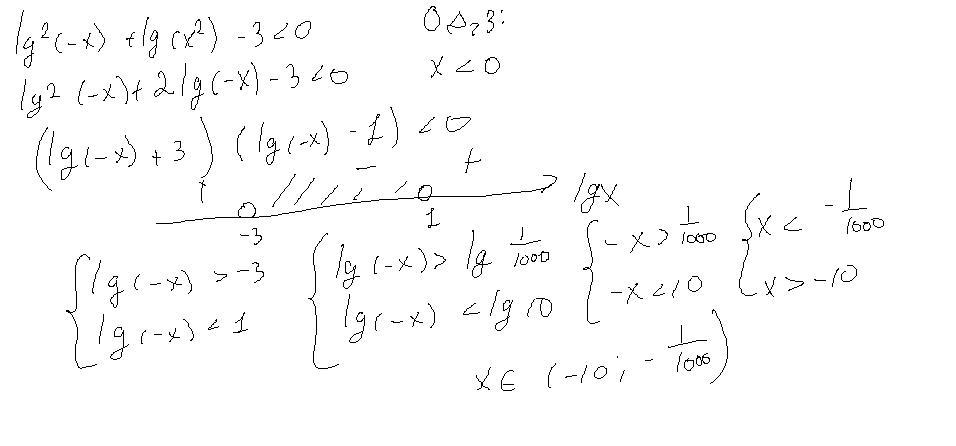 lg²(-x) + lg(x²) - 3 < 0
О.Д.З:
lg²(-x) + 2lg(-x) - 3 < 0
x < 0
(lg(-x) + 3)(lg(-x) - 1) < 0
+ - +
-3 1 lgx
{lg(-x) > -3
lg(-x) < 1
{lg(-x) > lg 1/1000
lg(-x) < lg 10
{-x > 1/1000
-x < 10
{x < -1/1000
x > -10
x ∈ (-10; -1/1000)